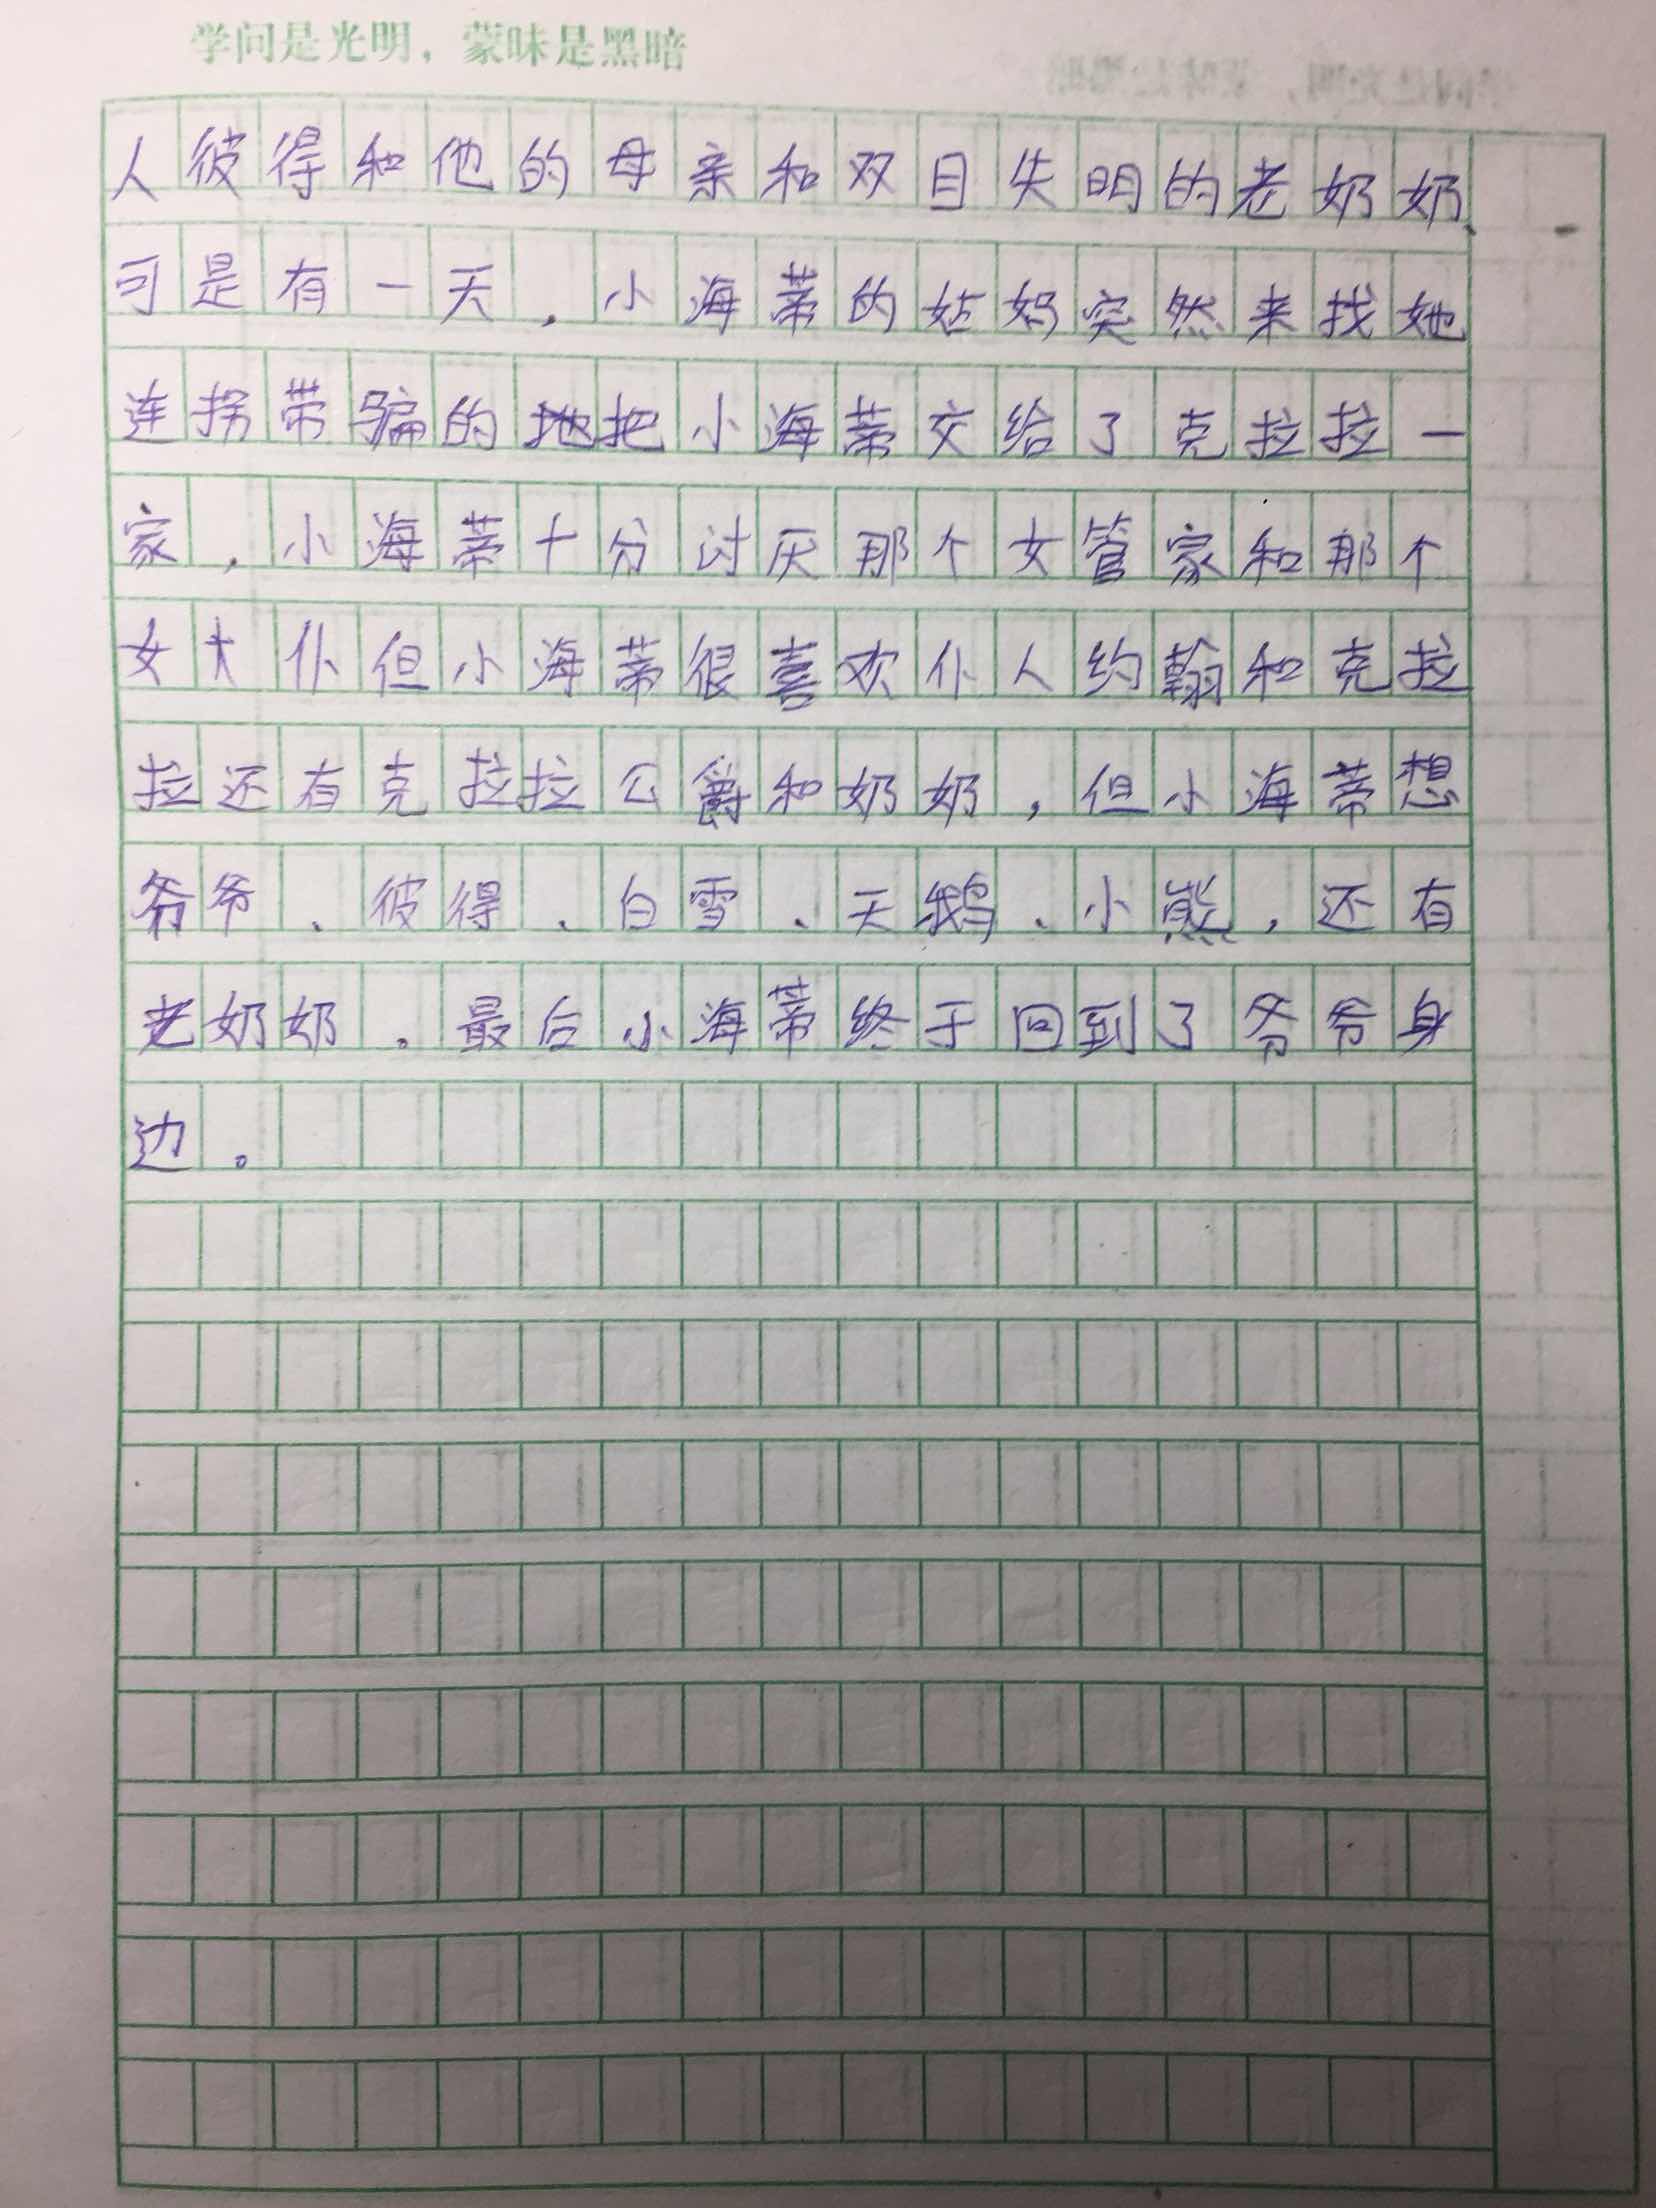 学问是光明，蒙昧是黑暗
人彼得和他的母亲和双目失明的老奶奶、
可是有一天，小海蒂的姑妈突然来找她
连拐带骗的地把小海蒂交给了克拉拉一
家，小海蒂十分讨厌那个女管家和那个
女大仆但小海蒂很喜欢仆人约翰和克拉
拉还有克拉拉公爵和奶奶，但小海蒂想
爷爷、彼得、白雪、天鹅、小熊，还有
老奶奶。最后小海蒂终于回到了爷爷身
边。